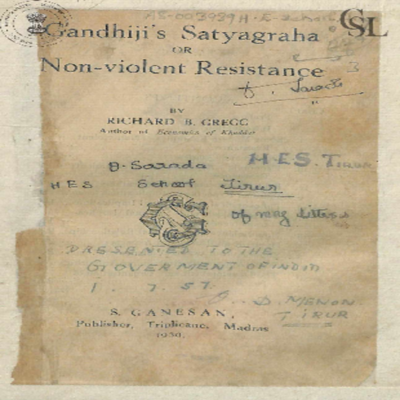 CSL
Gandhiji's Satyagraha
OR
Non-violent Resistance
BY
RICHARD B. GREGG
Author of Economics of Khaddar
H.E.S. Tirur
B. Sarada
H E S School Tirur
PRESENTED TO THE
GOVERNMENT OF INDIA
1. 7. 57
D. MENON
TIRUR
S. GANESAN,
Publisher, Triplicane, Madras
1930.